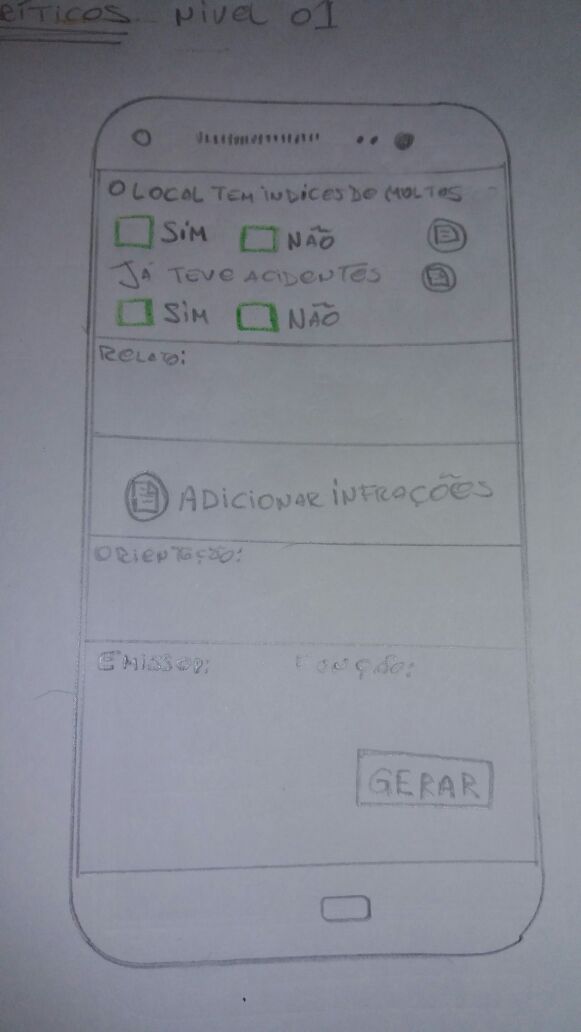 EÍTICOS NIVEL 01
O LOCAL TEM INDICES DE MULTAS
SIM NÃO
JÁ TEVE ACIDENTES
SIM NÃO
RELATO:
ADICIONAR INFRAÇÕES
ORIENTAÇÃO:
EMISSOR: FUNÇÃO:
GERAR